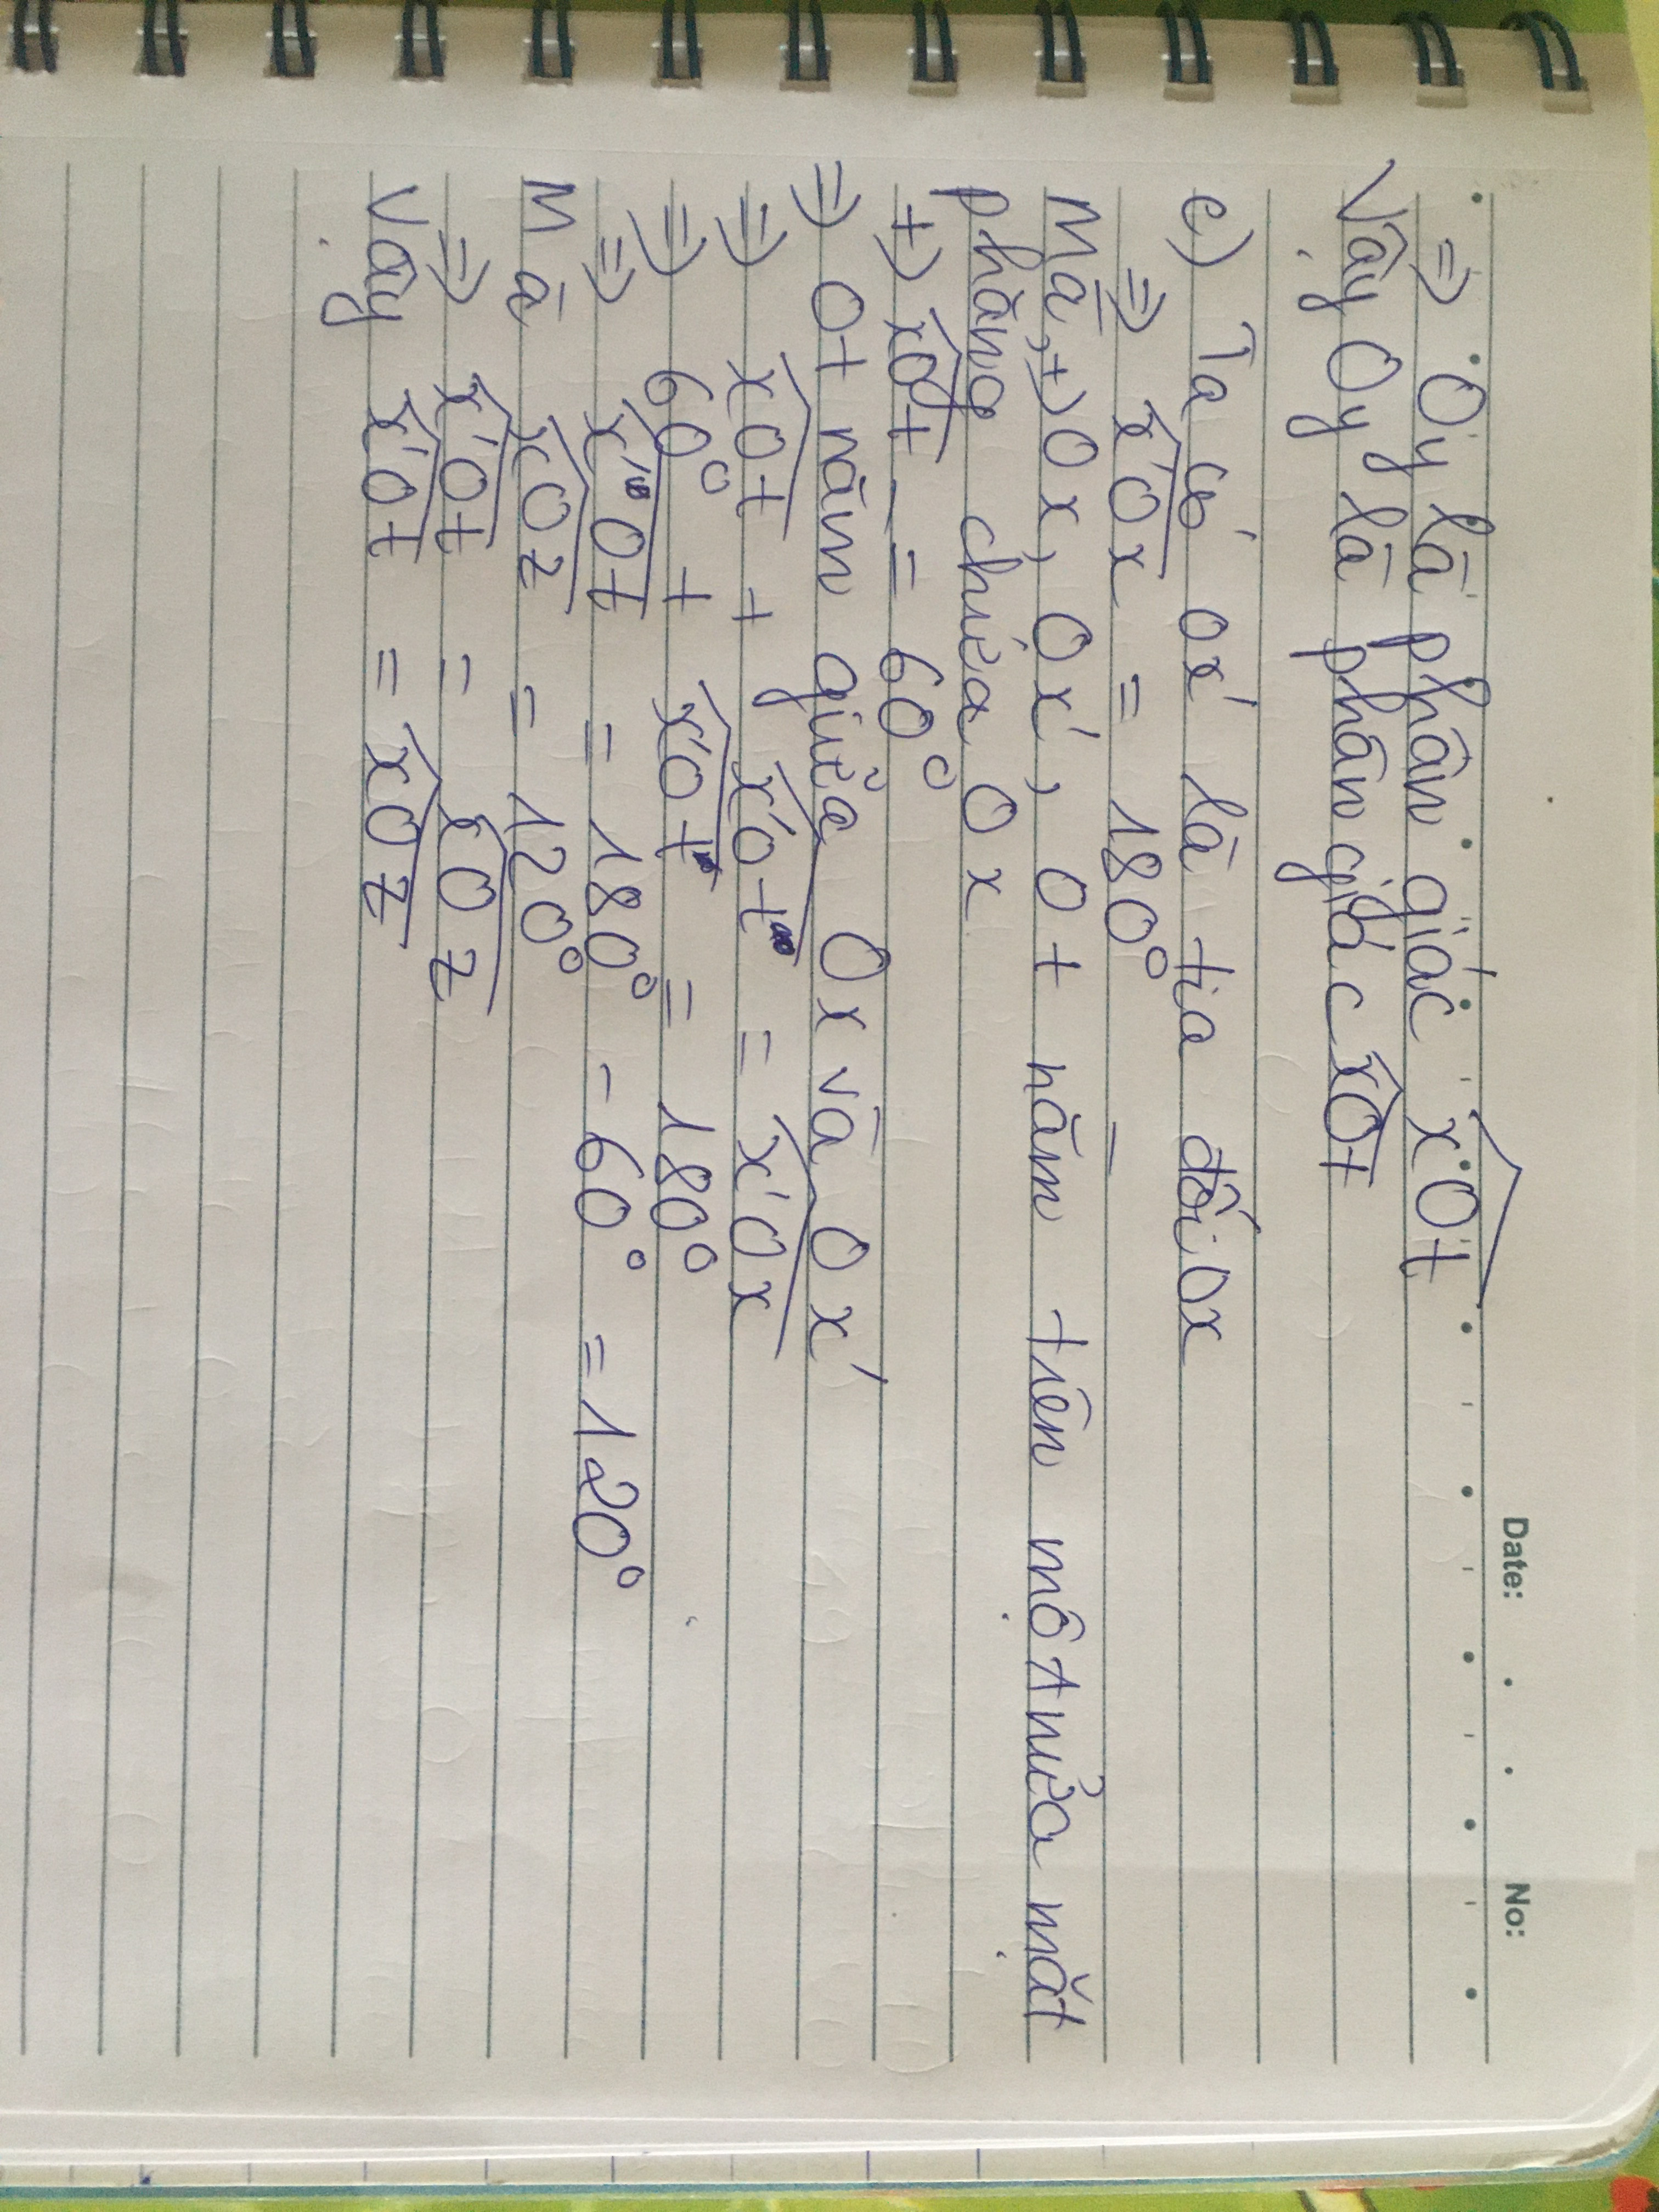 Date: No:
=> Oy là phân giác xOt
Vậy Oy là phân giác xOt
e) Ta có Ox' là tia đối Ox
=> x'Ox = 180°
Mà, +) Ox, Ox', Ot nằm trên một nửa mặt
phẳng chứa Ox
+) xOt = 60°
=> Ot nằm giữa Ox và Ox'
=> xOt + x'Ot = x'Ox
=> 60° + x'Ot = 180°
=> x'Ot = 180° - 60° = 120°
Mà xOz = 120°
=> x'Ot = xOz
Vậy x'Ot = xOz